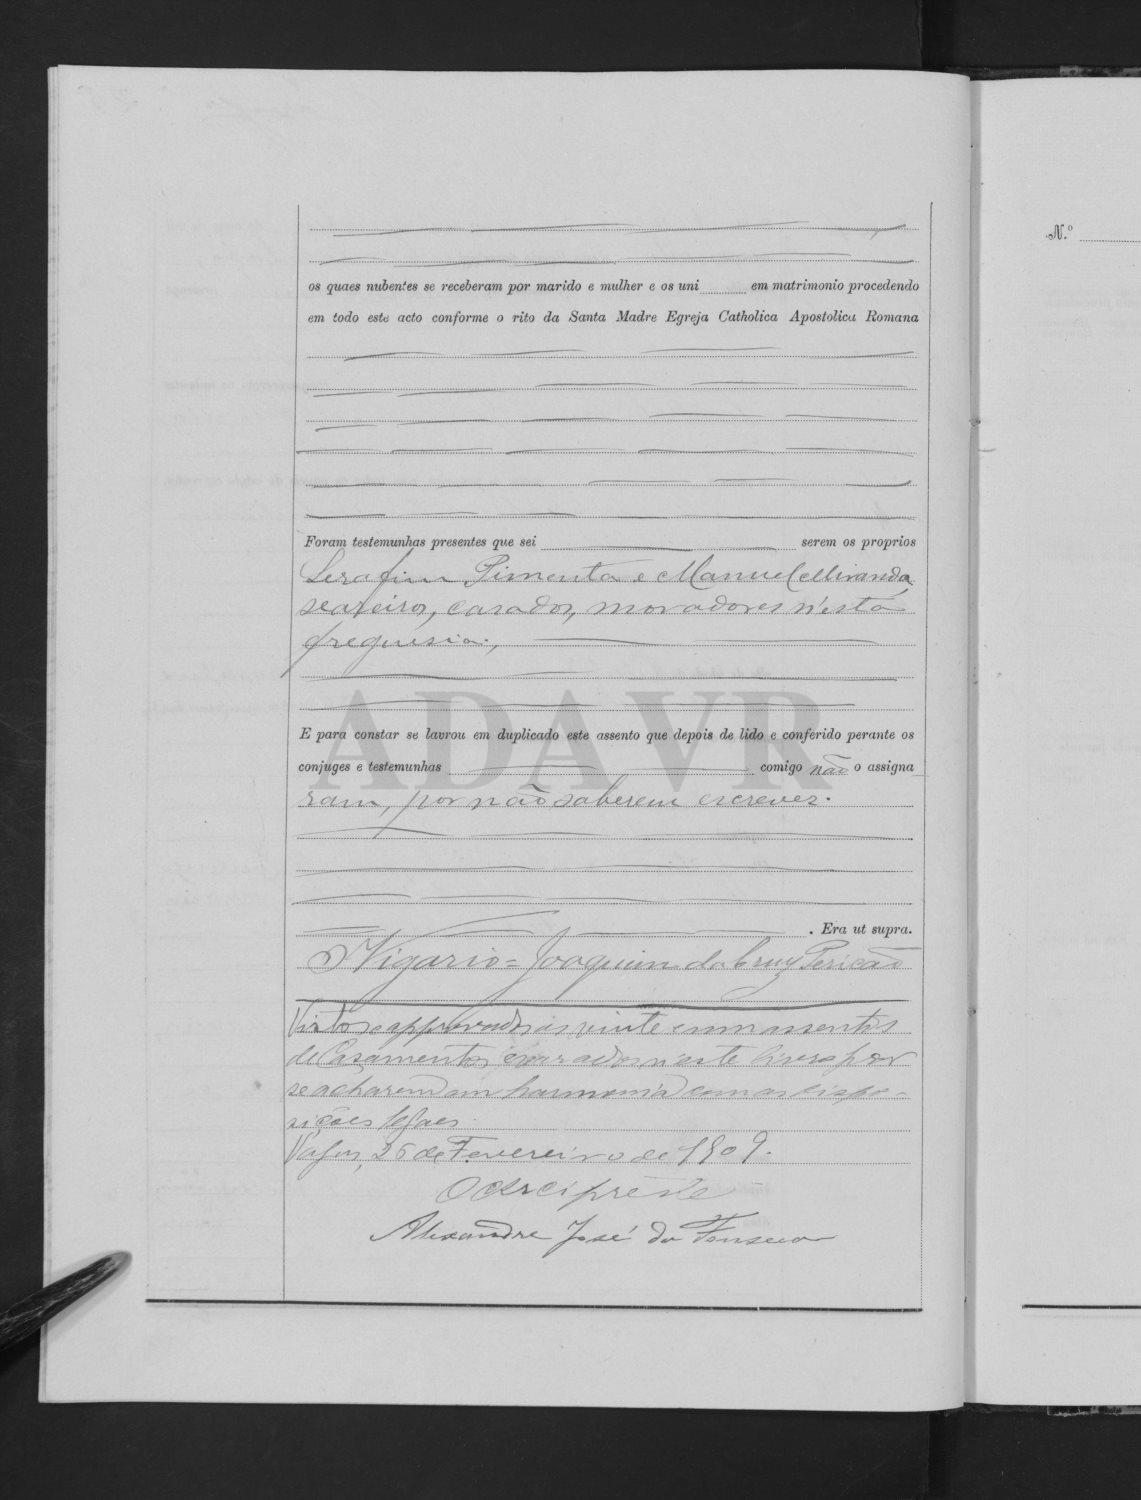 os quaes nubentes se receberam por marido e mulher e os uni em matrimonio procedendo
em todo este acto conforme o rito da Santa Madre Egreja Catholica Apostolica Romana
Foram testemunhas presentes que sei serem os proprios
Serafim Pimenta e Manuel Miranda,
seareiros, casados, moradores n'esta
freguesia.,
E para constar se lavrou em duplicado este assento que depois de lido e conferido perante os
conjuges e testemunhas comigo não o assigna
ram, por não saberem escrever.
. Era ut supra.
O Vigario = Joaquim da Cruz Pericão
Vistos e approvados os vinte e um assentos
de Casamentos exarados n'este livro por
se acharem em harmonia com as dispo-
sições legaes.
Vagos, 25 de Fevereiro de 1909.
O Arcipreste
Alexandre José da Fonseca
N.º
ADAVR